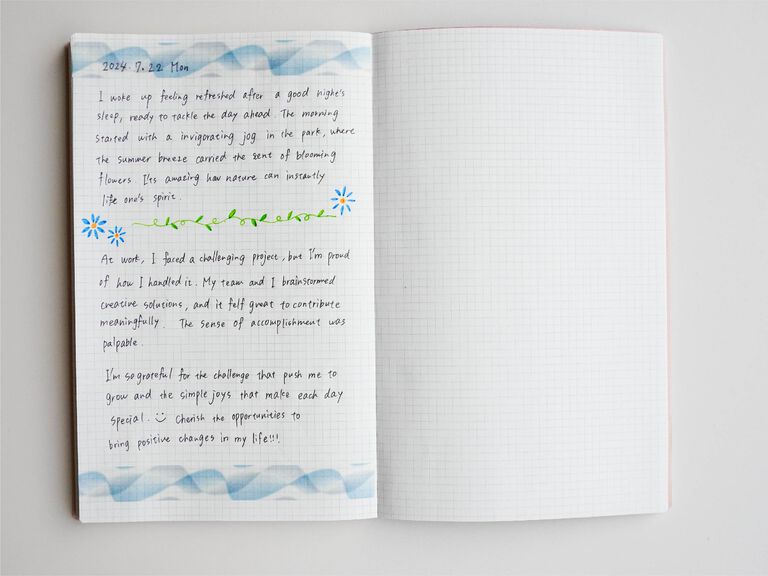 2024. 7. 22 Mon
I woke up feeling refreshed after a good night's
sleep, ready to tackle the day ahead. The morning
started with a invigorating jog in the park, where
the summer breeze carried the sent of blooming
flowers. It's amazing how nature can instantly
life one's spirit.
At work, I faced a challenging project, but I'm proud
of how I handled it. My team and I brainstormed
creative solutions, and it felf great to contribute
meaningfully. The sense of accomplishment was
palpable.
I'm so grateful for the challenge that push me to
grow and the simple joys that make each day
special. Cherish the opportunities to
bring positive changes in my life!!!.